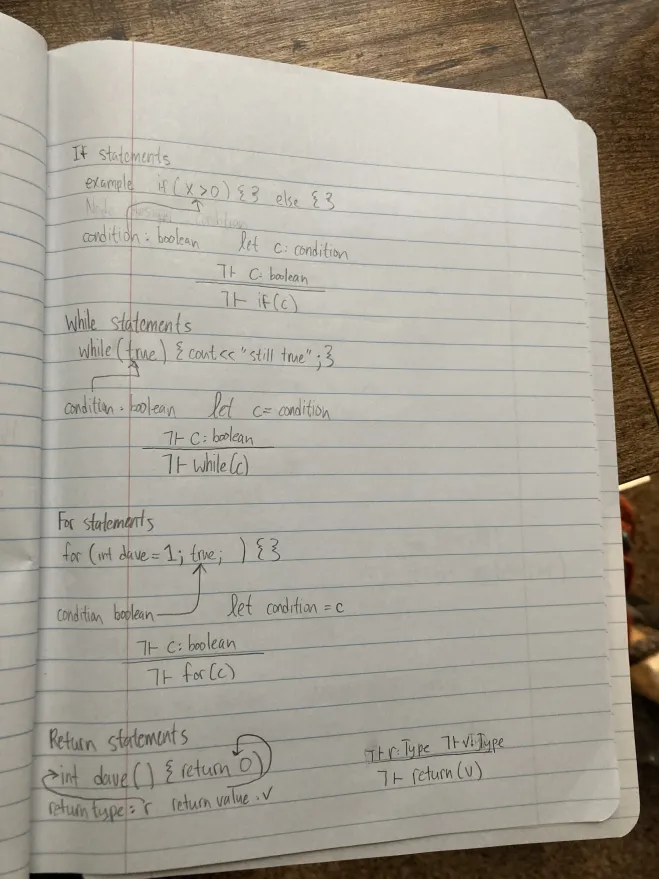 If statements
example if (x>0) {} else {}
condition : boolean let c: condition
⅂⊢ c: boolean
⅂⊢ if(c)
While statements
while (true) {cout<< "still true";}
condition : boolean let c= condition
⅂⊢ c: boolean
⅂⊢ while(c)
For statements
for (int dave = 1; true; ) {}
condition boolean let condition = c
⅂⊢ c: boolean
⅂⊢ for(c)
Return statements
⅂⊢ r: Type ⅂⊢ v: Type
int dave() {return 0}
⅂⊢ return(v)
return type : r return value : v